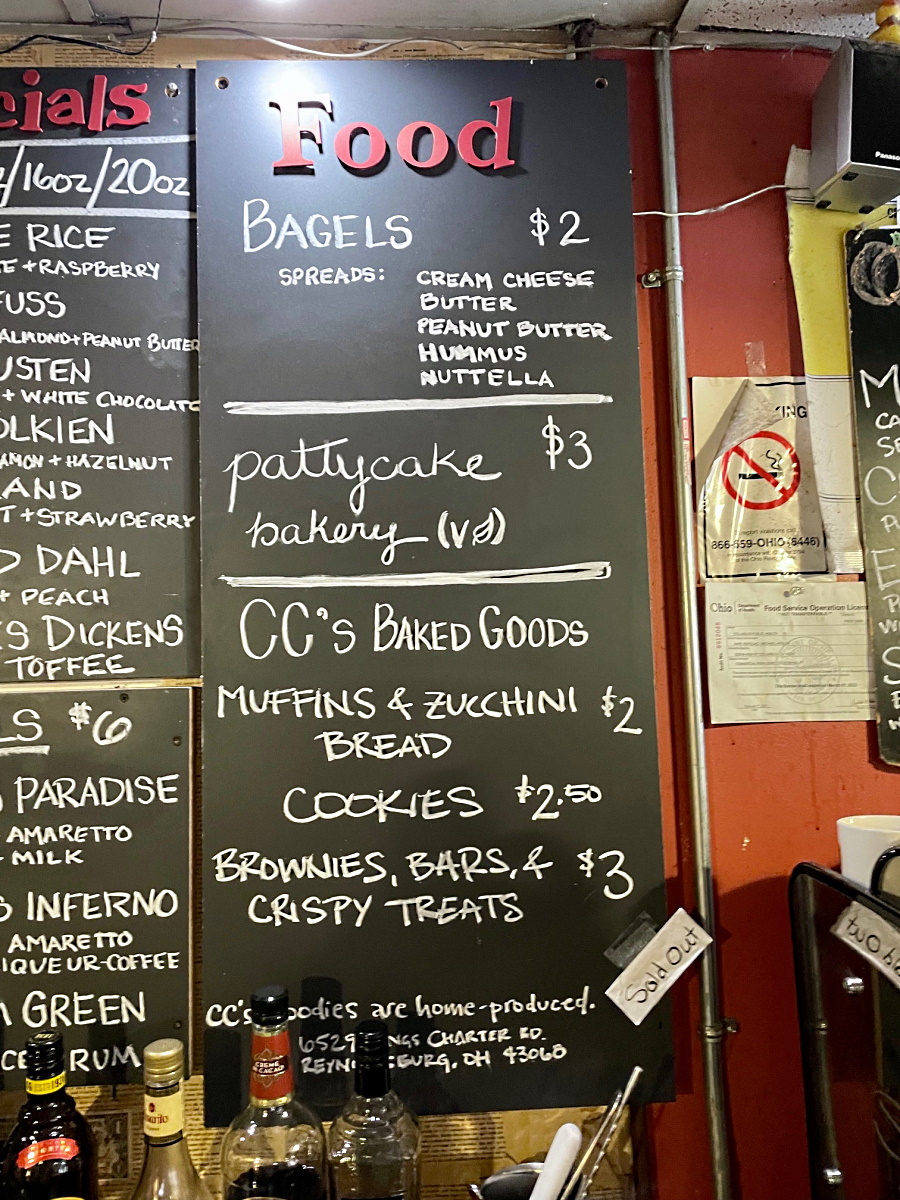 cials
/16oz/20oz
E RICE
TE + RASPBERRY
FUSS
ALMOND + PEANUT BUTTER
USTEN
+ WHITE CHOCOLATE
OLKIEN
AMON + HAZELNUT
RAND
T + STRAWBERRY
D DAHL
+ PEACH
S DICKENS
TOFFEE
LS $6
PARADISE
AMARETTO
MILK
S INFERNO
AMARETTO
IQUEUR-COFFEE
GREEN
RUM
Food
BAGELS $2
SPREADS: CREAM CHEESE
BUTTER
PEANUT BUTTER
HUMMUS
NUTTELLA
pattycake $3
bakery (VG)
CC's BAKED GOODS
MUFFINS & ZUCCHINI $2
BREAD
COOKIES $2.50
BROWNIES, BARS, & $3
CRISPY TREATS
Sold Out
CC's oodies are home-produced.
6529 NGS CHARTER RD.
REYN BURG, OH 43068
CREME
DE CACAO
Panaso
KING
866-559-OHIO (6446)
Ohio Department of Health Food Service Operation Licen
two